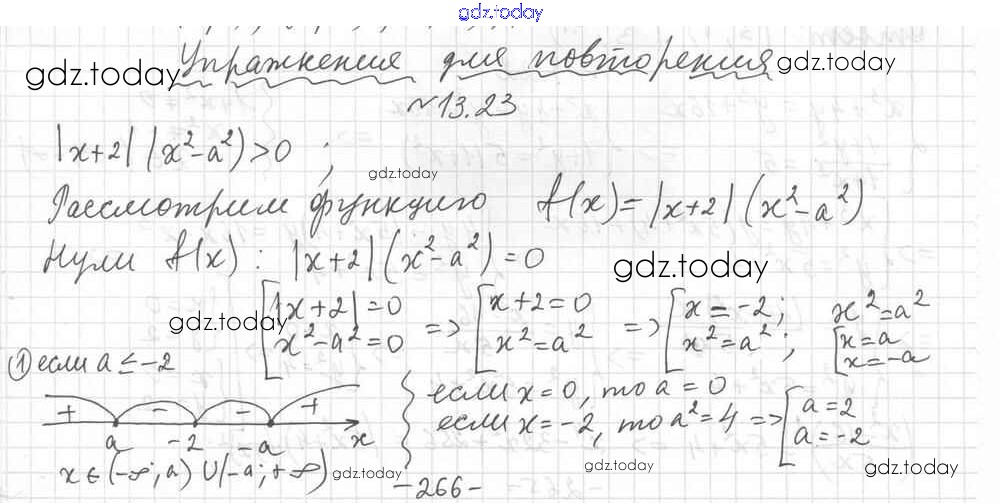 gdz.today
Упражнения для повторения
gdz.today gdz.today
№13.23
|x+2|(x²-a²)>0 ;
gdz.today
Рассмотрим функцию f(x)=|x+2|(x²-a²)
Нули f(x): |x+2|(x²-a²)=0
gdz.today
[|x+2|=0 => [x+2=0 => [x=-2; x²=a²
gdz.today
x²-a²=0 x²=a² x²=a²; [x=a
x=-a
① если a≤-2
{если x=0, то a=0
если x=-2, то a²=4 => [a=2
a=-2
+ - - +
a -2 -a x
x∈(-∞;a)∪(-a;+∞)
gdz.today gdz.today gdz.today
-266-